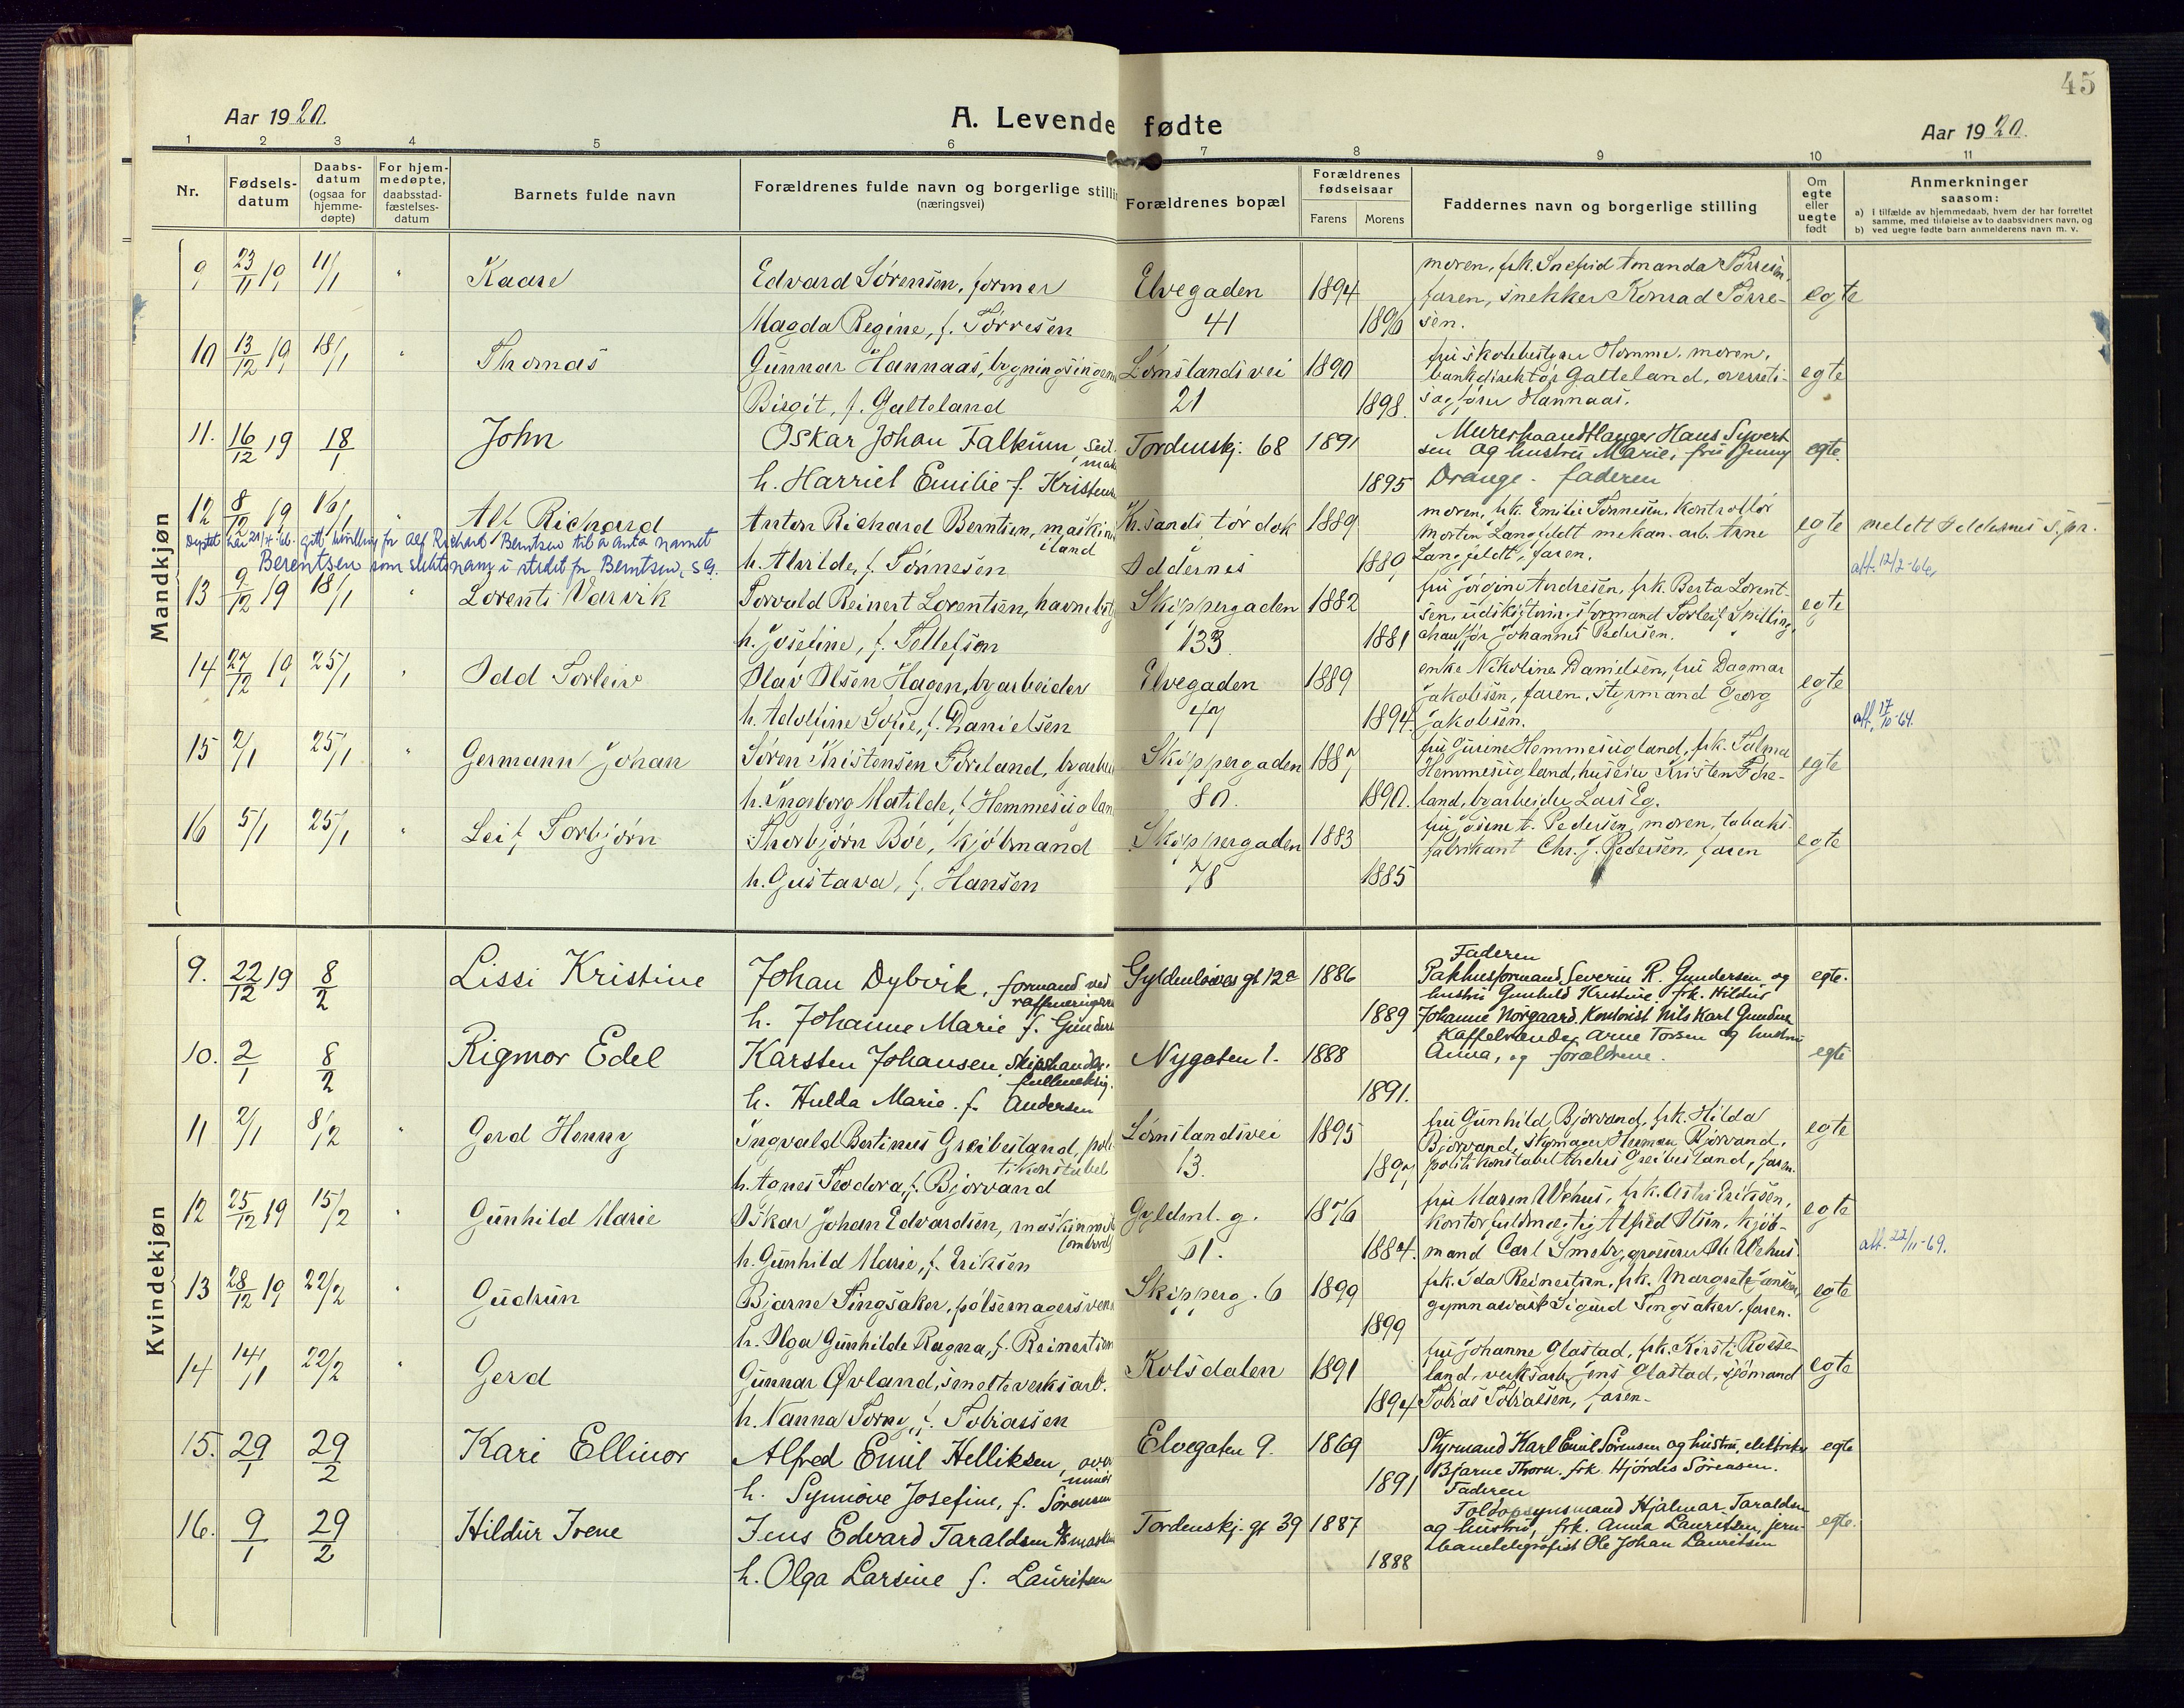 45
Aar 1920.
A. Levende fødte
Aar 1920.
1 2 3 4 5 6 7 8 9 10 11
Nr.
Fødsels-
datum
Daabs-
datum
(ogsaa for
hjemme-
døpte)
For hjem-
medøpte,
daabsstad-
fæstelses-
datum
Barnets fulde navn
Forældrenes fulde navn og borgerlige stilling
(næringsvei)
Forældrenes bopæl
Forældrenes
fødselsaar
Farens Morens
Faddernes navn og borgerlige stilling
Om
egte
eller
uegte
født
Anmerkninger
saasom:
a) I tilfælde av hjemmedaab, hvem der har forrettet
samme, med tilføielse av to daabsvidners navn, og
b) ved uegte fødte barn anmelderens navn m. v.
Mandkjøn
9 23/11 19 11/1 " Kaare
Edvard Sørensen, former
Magda Regine, f. Tørresen
Elvegaden
41
1894
1896
moren, frk. Snefrid Amanda Tørresen,
faren, snekker Konrad Tørre-
sen.
egte
10 13/12 19 18/1 " Thomas
Gunnar Hannaas, bygningsingen
Birgit, f. Galteland
Lømslandsvei
21
1890
1898.
fru skolebestyrer Homme, moren,
bankdirektør Galteland, overrets-
sagfører Hannaas.
egte
11. 16/12 19 18/1 John
Oskar Johan Falkum, seil
mak
h. Harriet Emilie f. Kristens
Tordenskj. 68
1891
1895
Murerhaandtlanger Hans Syvert
sen og hustru Marie, fru Jenny
Drange. faderen
egte.
12 8/12 19 16/1 " Alf Richard
Anton Richard Berntsen, maskin
iland
h. Alvilde, f. Tønnesen
Kr.sands tørdok
Oddernes
1889
1889
moren, frk. Emilie Tønnesen, kontrollør
Morten Langfeldt mekan. arb. Arne
Langfeldt, faren.
egte
meldt Oddernes s.pr.
att. 12/2-66,
gitt bevilling for Alf Richard Berntsen til å anta navnet
Berentsen som slektsnavn i stedet for Berntsen, S.G.
13 9/12 19 18/1 " Lorents Varvik
Torvald Reinert Lorentsen, havnebetj
h. Josefine, f. Tellefsen
Skippergaden
133
1882
1881
fru Jørgine Andresen, frk. Berta Lorent-
sen, udskibningsformand Torleif Spilling,
chauffør Johannes Pedersen.
egte
14 27/12 19 25/1 " Odd Torleiv
Olav Olsen Hagen, byarbeider
h. Adolfine Sofie, f. Danielsen
Elvegaden
47
1889
1894.
enke Nikoline Danielsen, fru Dagmar
Jakobsen, faren, styrmand Georg
Jakobsen.
egte
att. 17/10-64.
15 2/1 25/1 " Germann Johan
Søren Kristensen Føreland, byarbei
h. Ingeborg Matilde, f. Hemmesugland
Skippergaden
80.
1887
1890.
fru Gurine Hemmesugland, frk. Salma
Hemmesugland, huseier Kristen Føre-
land, byarbeider Lars Eg.
egte
16 5/1 25/1 " Leif Torbjørn
Thorbjørn Boe, kjøbmand
h. Gustava, f. Hansen
Skippergaden
78
1883
1885
fru Josene t. Pedersen, moren, tobaks-
fabrikant Chr. J. Pedersen, faren
egte
Kvindekjøn
9. 22/12 19 8/2 Lissi Kristine
Johan Dybvik, formand ved
raffineringsv
h. Johanne Marie f. Gunders
Gyldenløves gt 12a
1886
1889
Faderen
Pakhusformand Severin R. Gundersen og
hustru Gunhild Kristine frk. Hildur
Johanne Norgaard. Kontorist Nils Karl Gunders
egte.
10. 2/1 8/2 Rigmor Edel
Karsten Johansen, skipshandler-
fullmektig.
h. Hulda Marie. f. Andersen
Nygaten 1.
1888
1891.
Kaffebrænder Arne Torsen og hustru
Anna, og forældrene.
egte
11 2/1 8/2 " Gerd Henny
Ingvald Bertinius Greibesland, poli
tikonstabel
h. Agnes Teodora, f. Bjorvand
Lømslandsvei
13.
1895
1897
fru Gunhild Bjorvand, frk. Hilda
Bjorvand, skomager Herman Bjorvand,
politikonstabel Anders Greibesland, faren.
egte
12 25/12 19 15/2 " Gunhild Marie
Oskar Johan Edvardsen, maskinmest
(ombord)
h. Gunhild Marie, f. Eriksen
Gyldenl. g.
61.
1876
1884.
fru Maren Wehus, frk. Astri Eriksen,
kontorfuldmegtig Alfred Olsen, kjøb-
mand Carl Smeby, grosserer Ole Wehus.
egte
att. 22/11-69.
13 28/12 19 22/2 " Gudrun
Bjarne Tingsaker, pølsemagersvend
h. Olga Gunhilde Ragna, f. Reinertsen
Skipperg. 6
1899
1899
frk. Ida Reinertsen, frk. Margrete Jensen,
gymnasiast Sigurd Tingsaker, faren.
egte
14 14/1 22/2 " Gerd
Gunnar Øvland, smelteverksarb.
h. Nanna Torny, f. Tobiassen
Kolsdalen
1891
1894
fru Johanne Glastad, frk. Kirsti Rosse-
land, verksarb. Jens Glastad, sjømand
Tobias Tobiassen, faren.
egte
15. 29/1 29/2 Kari Ellinor
Alfred Emil Helliksen, over
minør
h. Synnøve Josefine, f. Sørensen
Elvegaten 9.
1869
1891
Styrmand Karl Emil Sørensen og hustru, elektriker
Bjarne Thorn. frk. Hjørdis Sørensen.
Faderen
egte
16. 9/1 29/2 Hildur Irene
Jens Edvard Taraldsen
h. Olga Larsine f. Lauritsen
Tordenskj. gt 39
1887
1888
Toldopsynsmand Hjalmar Taraldsen
og hustru, frk. Anna Lauritsen, jern-
banetelegrafist Ole Johan Lauritsen
egte.